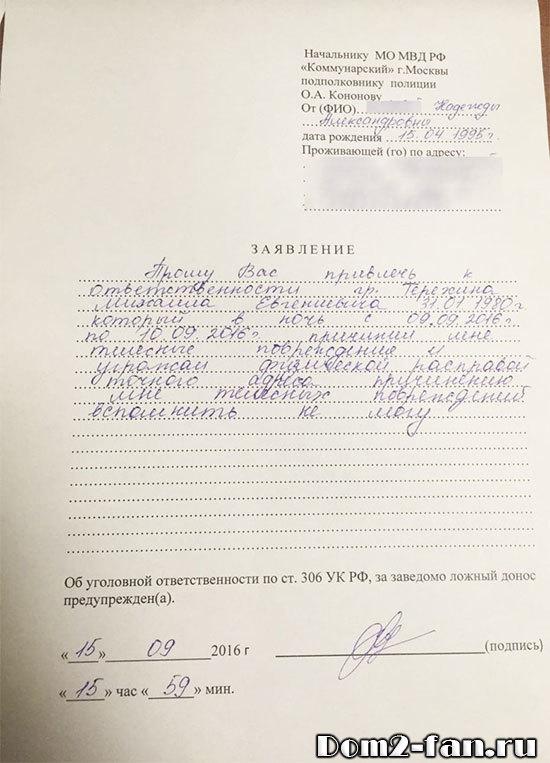 Начальнику МО МВД РФ
«Коммунарский» г.Москвы
подполковнику полиции
О.А. Кононову
От (ФИО) Надежды
Александровны
дата рождения 15.04 1995г.
Проживающей (го) по адресу:
ЗАЯВЛЕНИЕ
Прошу Вас привлечь к
ответственности гр. Терехина
Михаила Евгеньевича 31.01 1980г
который в ночь с 09.09.2016г.
по 10.09.2016г. причинил мне
телесные повреждение и
угрожал физической расправой
точного адреса причинению
мне телесных повреждений
вспомнить не могу
Об уголовной ответственности по ст. 306 УК РФ, за заведомо ложный донос
предупрежден(а).
«15» 09 2016 г (подпись)
«15» час «59» мин.
Dom2-fan.ru